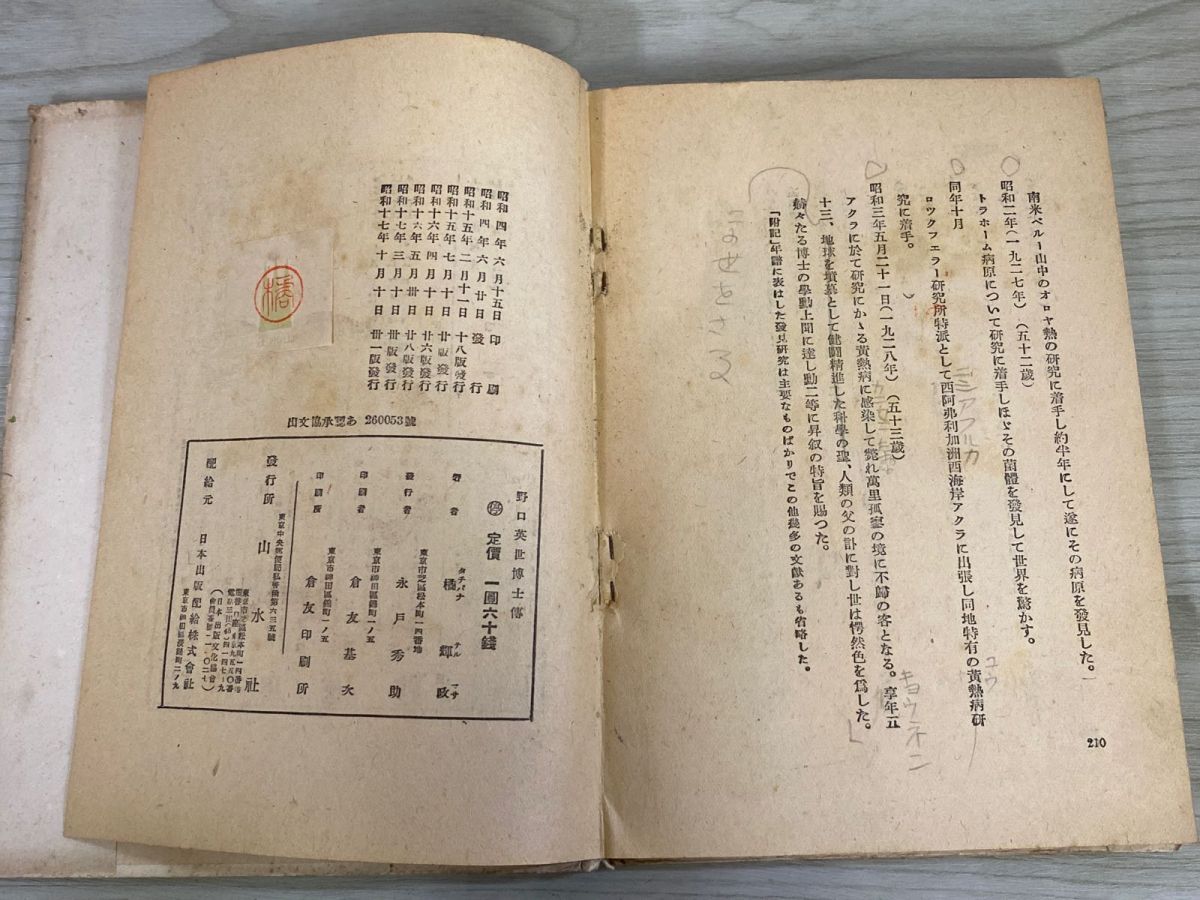 南米ペルー山中のオロヤ熱の研究に着手し約半年にして遂にその病原を發見した。
昭和二年(一九二七年)(五十二歳)
トラホーム病原について研究に着手しほゞその菌體を發見して世界を驚かす。
同年十月
ロックフェラー研究所特派として西阿弗利加洲西海岸アクラに出張し同地特有の黄熱病研
究に着手。
昭和三年五月二十一日(一九二八年)(五十三歳)
アクラに於て研究にかゝる黄熱病に感染して斃れ萬里孤客の境に不歸の客となる。享年五
十三、地球を墳墓として健鬪精進した科學の聖、人類の父の訃に對し世は愕然色を爲した。
赫々たる博士の學動上聞に達し勳二等に昇叙の特旨を賜つた。
「附記」年譜に表はした發見研究は主要なものばかりでこの他幾多の文獻あるも省略した。
ニシアフルカ
ユウ
キョウネン
210
昭和四年六月十五日印刷
昭和四年六月廿日發行
昭和十五年二月十一日十八版發行
昭和十五年七月十日廿版發行
昭和十六年四月十日廿六版發行
昭和十六年五月卅日廿八版發行
昭和十七年三月十日卅版發行
昭和十七年十月十日卅一版發行
橘
出文協承認あ260053號
野口英世博士傳
停 定價 一圓六十錢
著者 橘輝政
タチバナ テルマサ
東京市芝區松本町一四番地
發行者 永戸秀助
東京市神田區錦町一ノ五
印刷者 倉友基次
東京市神田區錦町一ノ五
印刷所 倉友印刷所
東京中央郵便局私書函第六三五號
發行所 山水社
東京市芝區松本町一四番地
配給元 日本出版配給株式會社
東京市神田區淡路町二ノ九